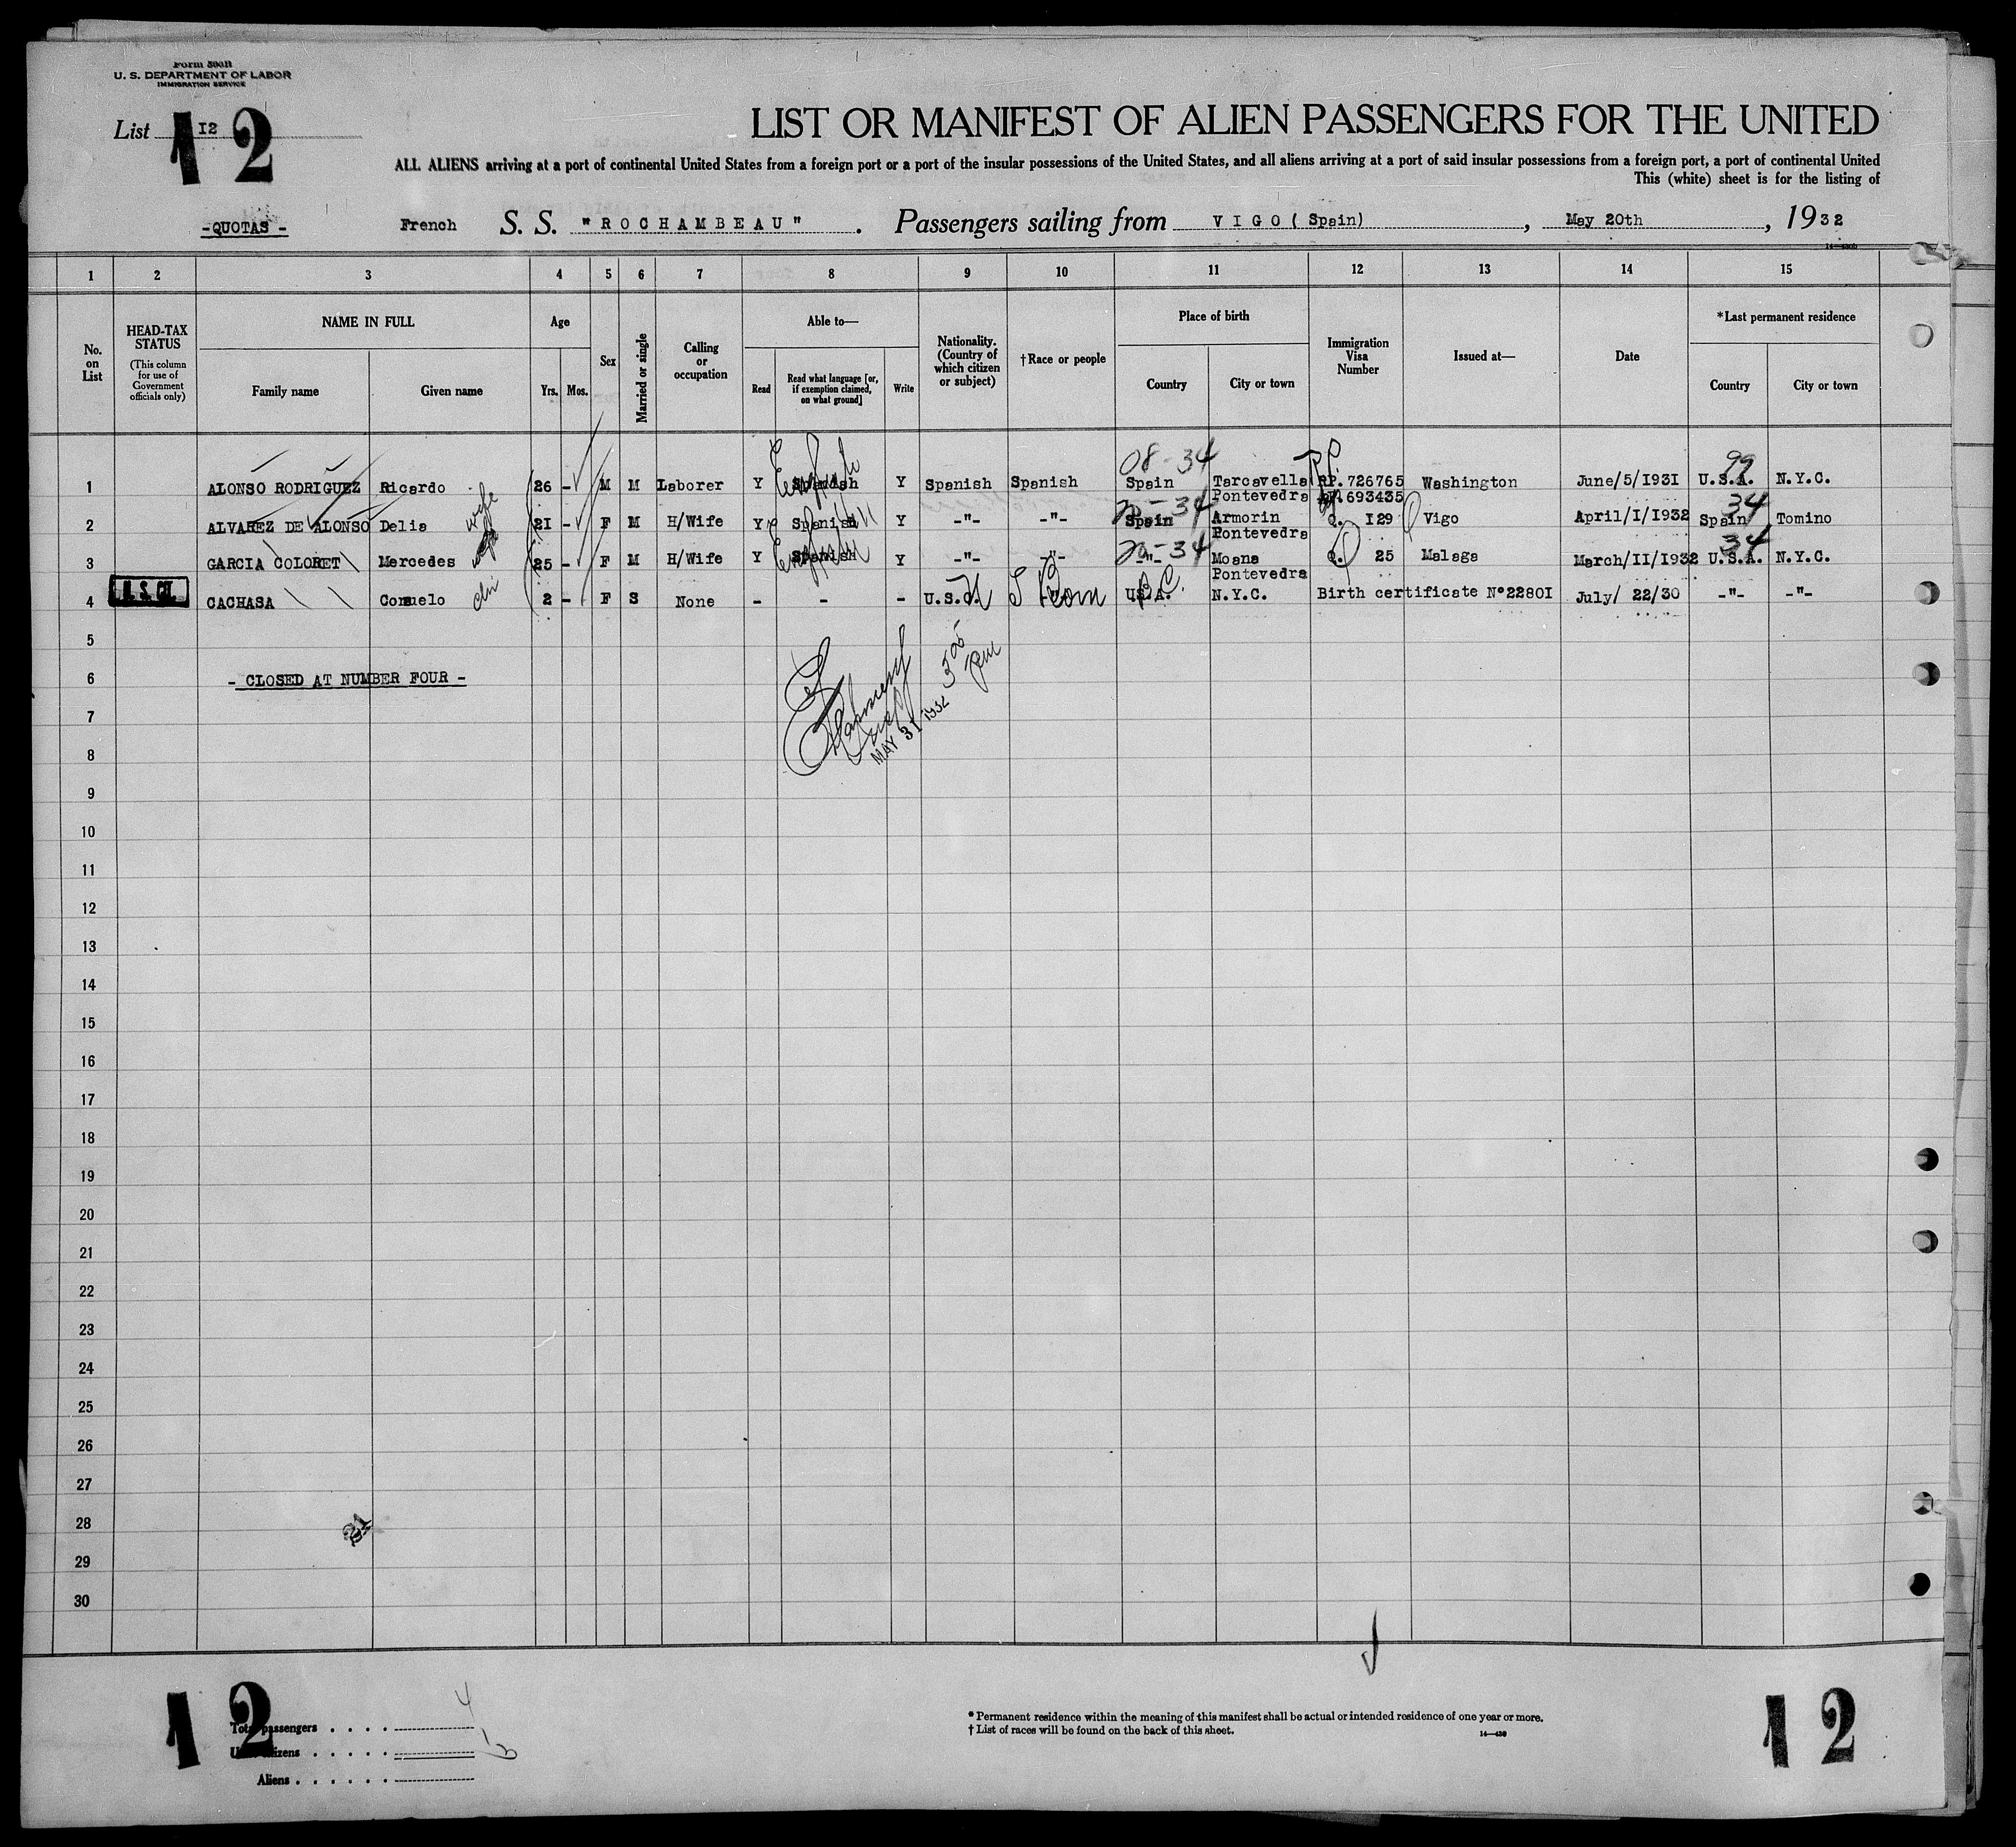 Form 500B
U. S. DEPARTMENT OF LABOR
IMMIGRATION SERVICE
List 12
12
LIST OR MANIFEST OF ALIEN PASSENGERS FOR THE UNITED
ALL ALIENS arriving at a port of continental United States from a foreign port or a port of the insular possessions of the United States, and all aliens arriving at a port of said insular possessions from a foreign port, a port of continental United
This (white) sheet is for the listing of
-QUOTAS- French S. S. "ROCHAMBEAU". Passengers sailing from VIGO (Spain), May 20th, 1932
1 2 3 4 5 6 7 8 9 10 11 12 13 14 15
No. on List
HEAD-TAX STATUS (This column for use of Government officials only)
NAME IN FULL Family name Given name
Age Yrs. Mos.
Sex
Married or single
Calling or occupation
Able to— Read Read what language [or, if exemption claimed, on what ground] Write
Nationality. (Country of which citizen or subject)
†Race or people
Place of birth Country City or town
Immigration Visa Number
Issued at—
Date
*Last permanent residence Country City or town
08-34 99
1 ALONSO RODRIGUEZ Ricardo 26 - M M Laborer Y Spanish English Y Spanish Spanish Spain Tarcavella Pontevedra RP. 726765 693435 Washington June/5/1931 U.S.A. N.Y.C.
20-34 34
2 ALVAREZ DE ALONSO Delia wife 21 - F M H/Wife Y Spanish Y -"- -"- Spain Armorin Pontevedra Q. 129 Vigo April/1/1932 Spain Tomino
20-34 34
3 GARCIA COLORET Mercedes wife 25 - F M H/Wife Y Spanish English Y -"- -"- -"- Moana Pontevedra Q. 25 Malaga March/11/1932 U.S.A. N.Y.C.
4 U. S. CIT. CACHASA Consuelo chi 2 - F S None - - - U.S.A. U S Born U.S.A. B.C. N.Y.C. Birth certificate Nº22801 July/ 22/30 -"- -"-
5
6 - CLOSED AT NUMBER FOUR -
7
MAY 31 1932
8
9
10
11
12
13
14
15
16
17
18
19
20
21
22
23
24
25
26
27
28
29
30
12
Total passengers 4
U.S. citizens 1
Aliens
* Permanent residence within the meaning of this manifest shall be actual or intended residence of one year or more.
† List of races will be found on the back of this sheet.
14—430
12